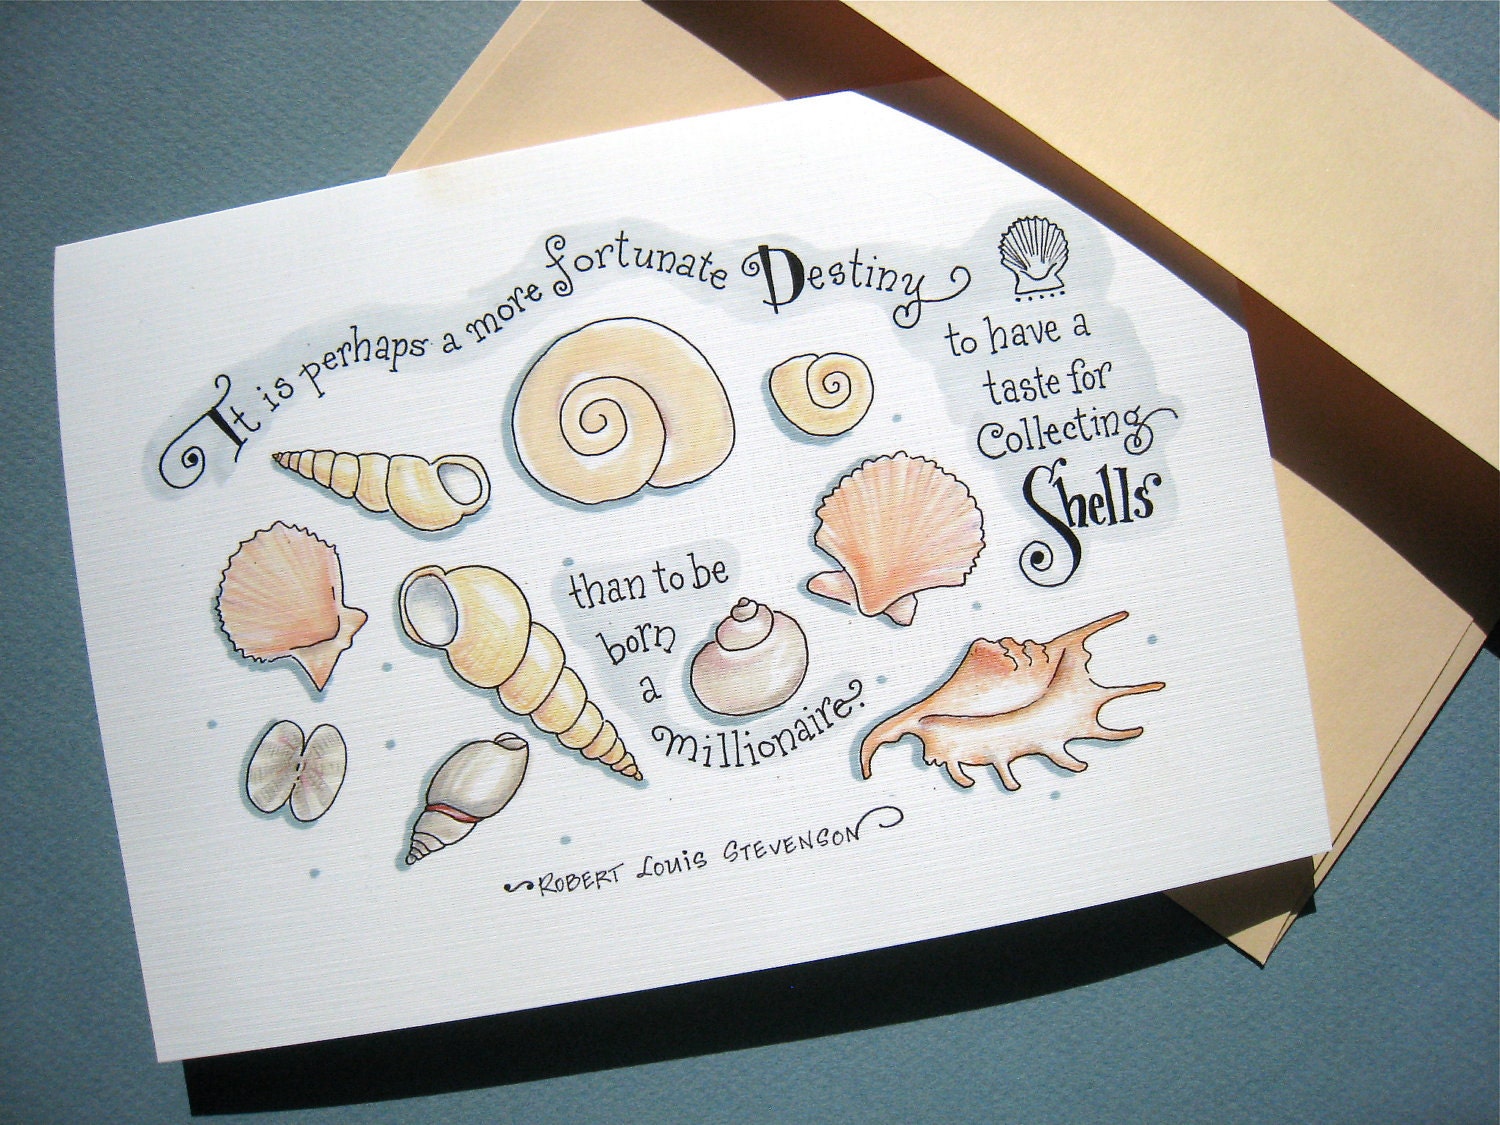 It is perhaps a more fortunate Destiny
to have a
taste for
Collecting
Shells
than to be
born
a
millionaire.
~ROBERT LOUIS STEVENSON